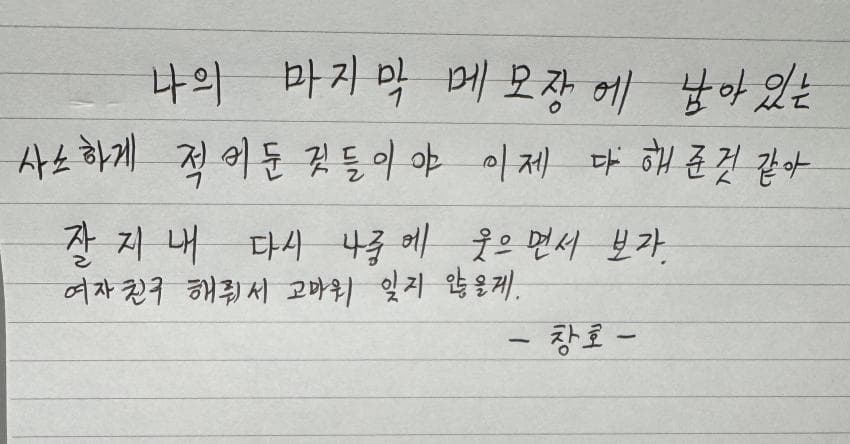 나의 마지막 메모장에 남아있는
사소하게 적어둔 것들이야 이제 다 해준것 같아
잘 지내 다시 나중에 웃으면서 보자.
여자친구 해줘서 고마워 잊지 않을게.
- 창호 -